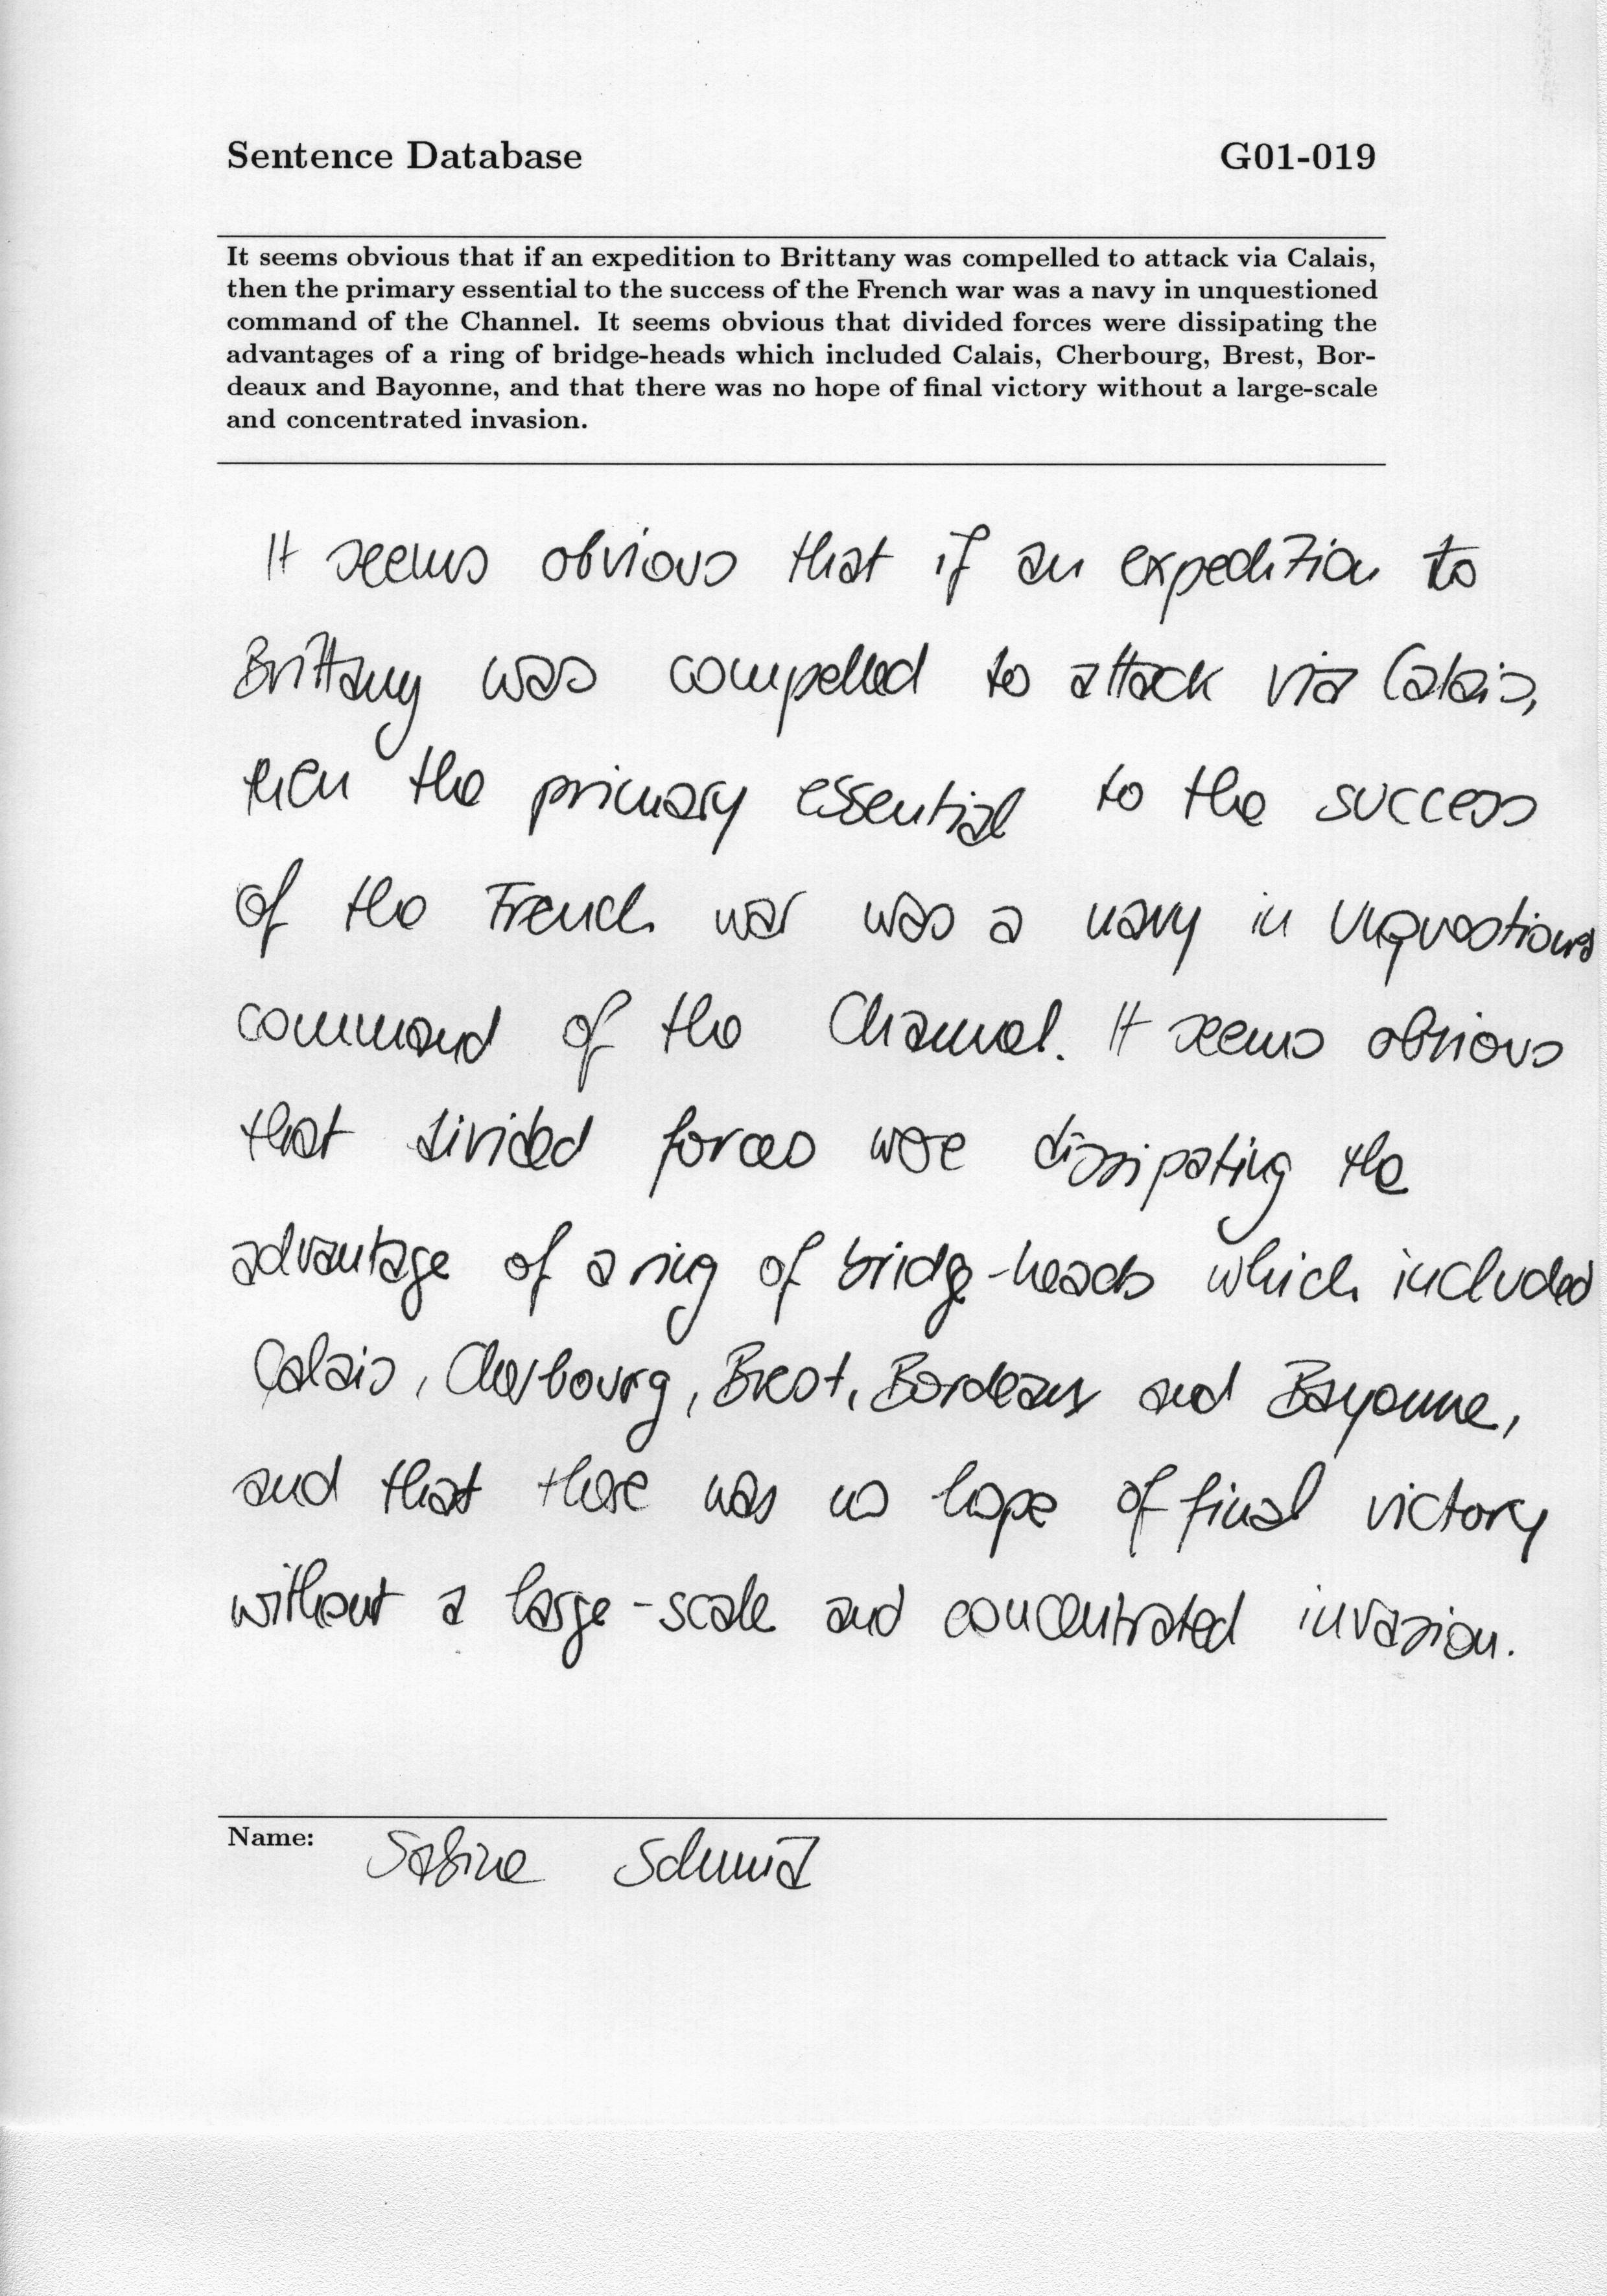 Sentence Database G01-019
It seems obvious that if an expedition to Brittany was compelled to attack via Calais,
then the primary essential to the success of the French war was a navy in unquestioned
command of the Channel. It seems obvious that divided forces were dissipating the
advantages of a ring of bridge-heads which included Calais, Cherbourg, Brest, Bor-
deaux and Bayonne, and that there was no hope of final victory without a large-scale
and concentrated invasion.
It seems obvious that if an expedition to
Brittany was compelled to attack via Calais,
then the primary essential to the success
of the French war was a navy in unquestioned
command of the Channel. It seems obvious
that divided forces were dissipating the
advantage of a ring of bridge-heads which included
Calais, Cherbourg, Brest, Bordeaux and Bayonne,
and that there was no hope of final victory
without a large-scale and concentrated invasion.
Name: Sabine Schmid